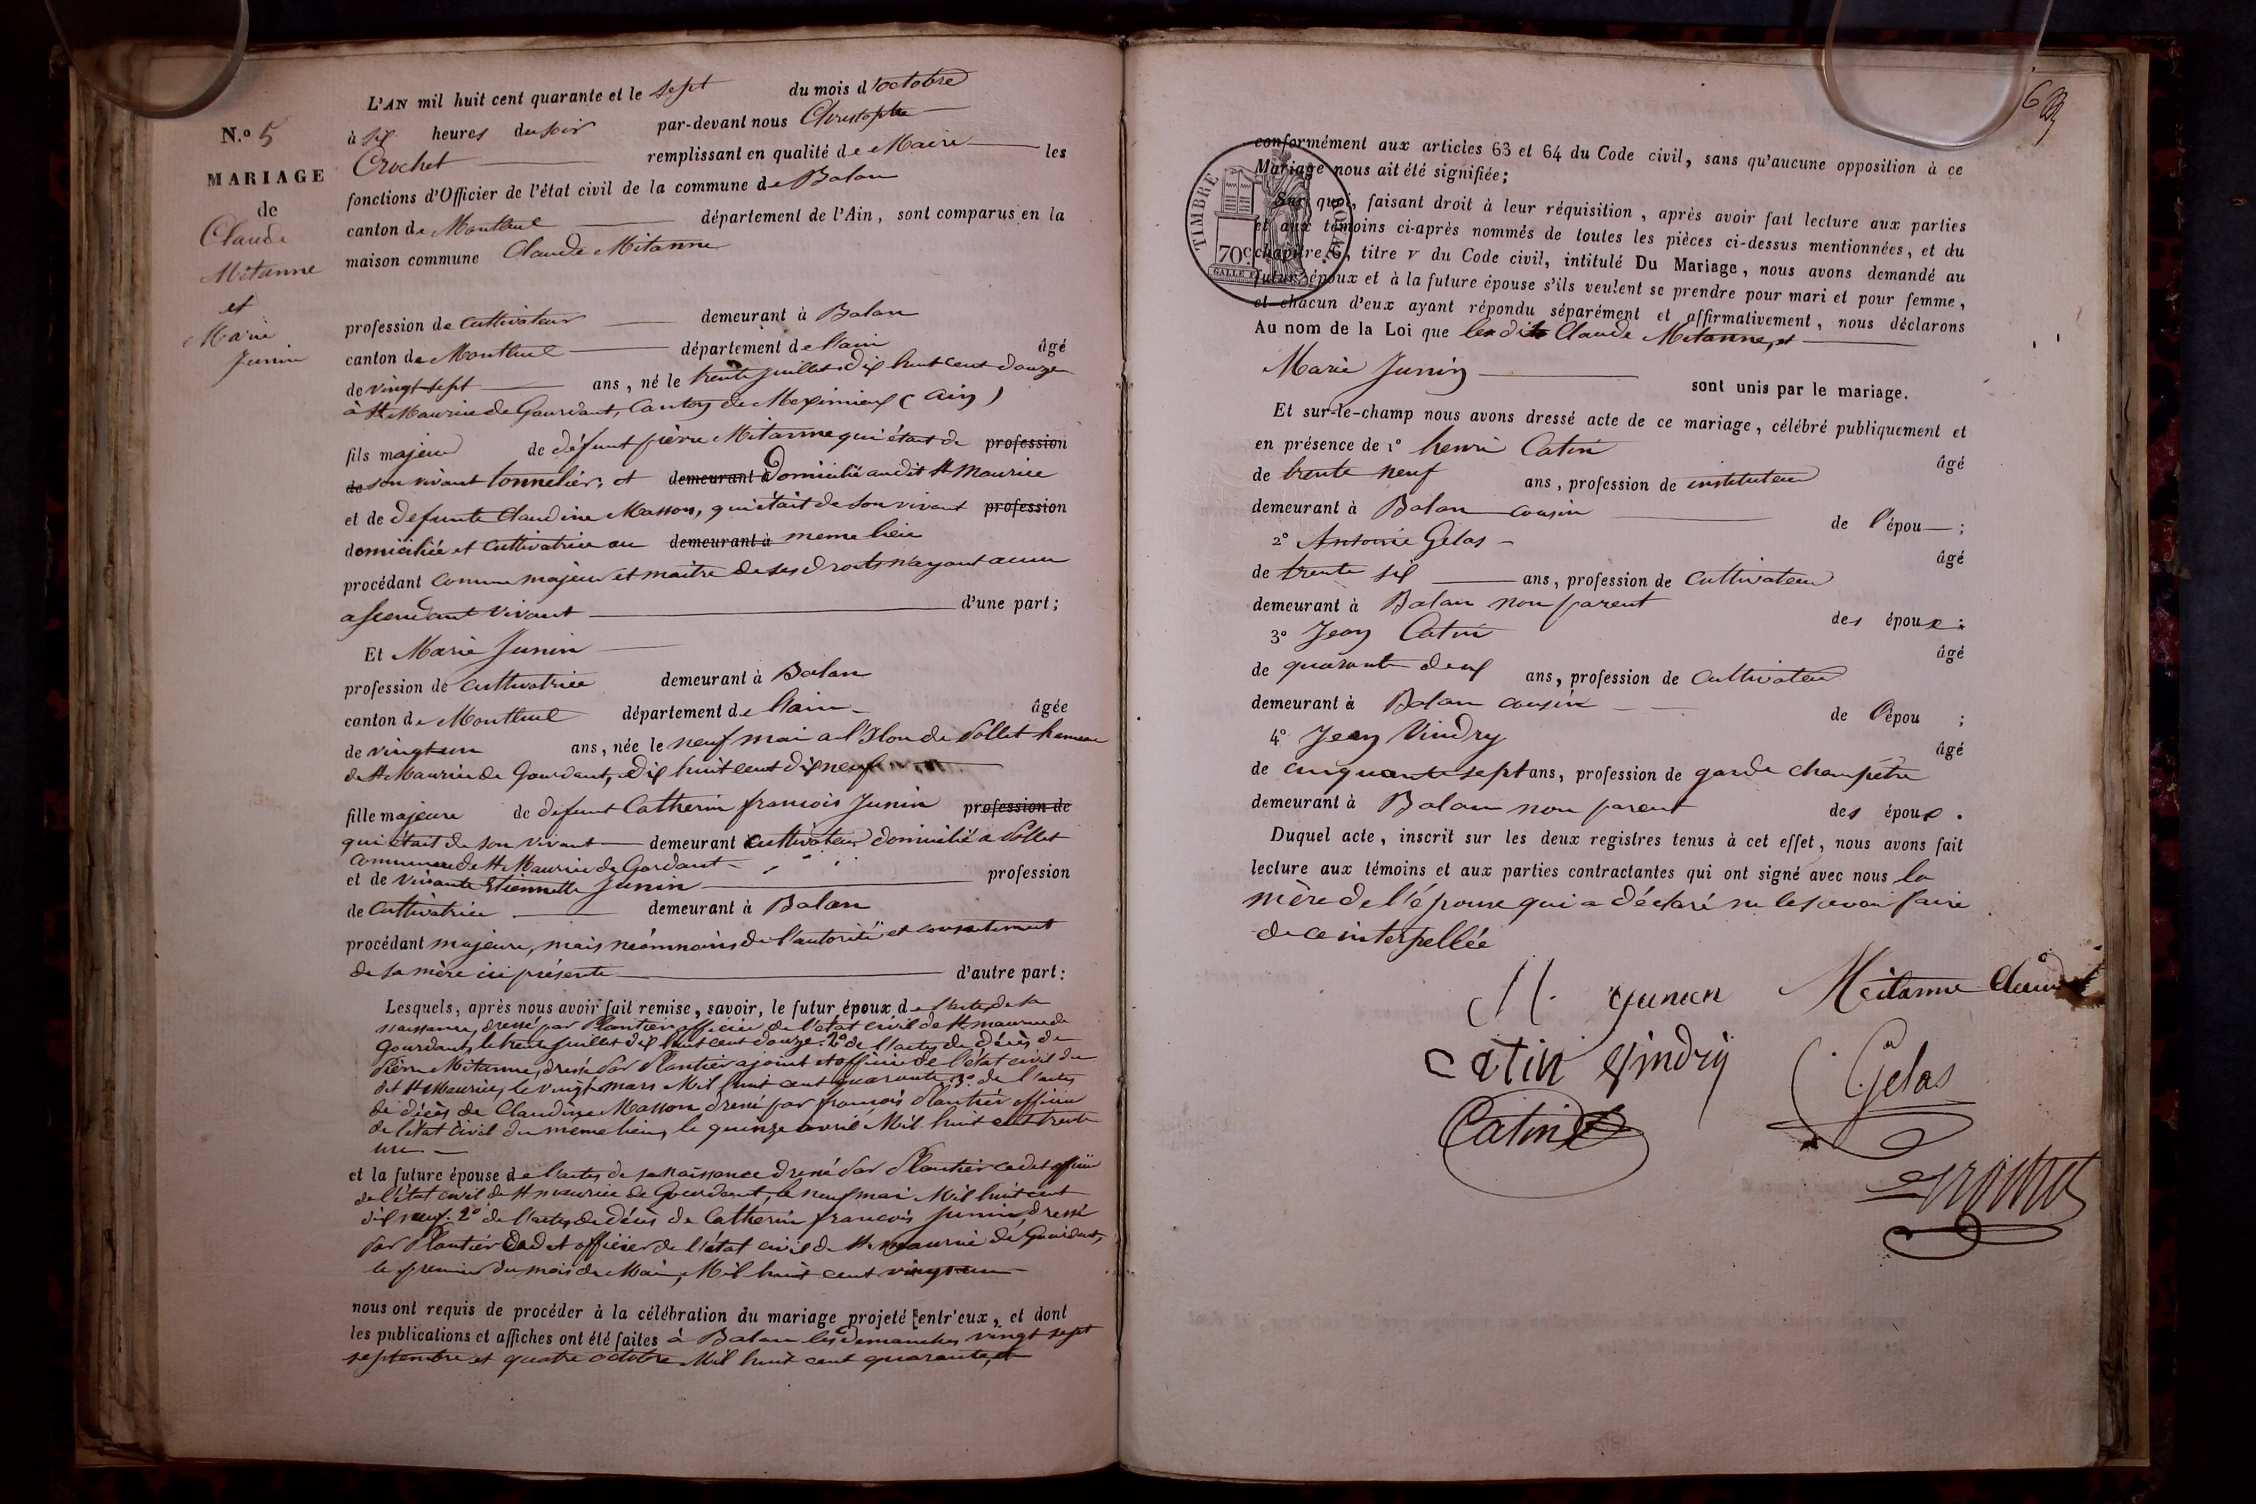 L'AN mil huit cent quarante et le sept du mois d'octobre
N.o 5
à six heures du soir par-devant nous Christophe
Crochet remplissant en qualité de Maire les
MARIAGE
fonctions d'Officier de l'état civil de la commune de Balan
de
canton de Montluel département de l'Ain, sont comparus en la
Claude
maison commune Claude Mitanne
Mitanne
et
profession de cultivateur demeurant à Balan
Marie
canton de Montluel département de l'ain âgé
Junin
de vingt sept ans, né le trente juillet dix huit cent douze
à St Maurice de Gourdant, Canton de Meximieux (Ain)
fils majeur de défunt pierre Mitanne qui était de profession
de son vivant tonnelier, et demeurant à Domicilié audit St Maurice
et de defunte Claudine Masson, qui était de son vivant profession
domiciliée et cultivatrice au demeurant à meme lieu
procédant comme majeur et maitre de ses droits n'ayant aucun
ascendant vivant d'une part;
Et Marie Junin
profession de cultivatrice demeurant à Balan
canton de Montluel département de l'ain âgée
de vingt un ans, née le neuf mai a l'Ilon de Sollet hameau
de St Maurice de Gourdant, dix huit cent dix neuf
fille majeure de defunt Catherin françois Junin profession de
qui était de son vivant demeurant cultivateur domicilié a Sollet
commune de St Maurice de Gordant
et de vivante Etiennette Junin profession
de Cultivatrice demeurant à Balan
procédant majeure, mais néomnoins de l'autorité et consentement
de sa mère ici présente d'autre part:
Lesquels, après nous avoir fait remise, savoir, le futur époux de l'acte de sa
naissance, dressé par Plantier officier de l'état civil de St maurice de
Gourdant, le trente juillet dix huit cent douze. 2o de l'actes de décès de
Pierre Mitanne, dressé par Plantier ajoint et officier de l'état civil du
dit St Maurice, le vingt mars Mil huit cent quarante, 3o de l'actes
de décès de Claudine Masson dressé par françois Plantier officier
de l'état civil du meme lieu, le quinze avril Mil huit cent trente
un
et la future épouse de l'actes de sa naissance dressé par Plantier cadet officier
de l'état civil de St maurice de Gourdant, le neuf mai Mil huit cent
dix neuf. 2o de l'actes de décès de Catherin françois Junin dressé
par Plantier Cadet officier de l'état civil de St maurice de Gourdant,
le premier du mois de Mai, Mil huit cent vingt un
nous ont requis de procéder à la célébration du mariage projeté entr'eux, et dont
les publications et affiches ont été faites à Balan les Demanches vingt sept
septembre et quatre octobre Mil huit cent quarante, et
conformément aux articles 63 et 64 du Code civil, sans qu'aucune opposition à ce
Mariage nous ait été signifiée;
Sur quoi, faisant droit à leur réquisition, après avoir fait lecture aux parties
et aux témoins ci-après nommés de toutes les pièces ci-dessus mentionnées, et du
chapitre 6, titre v du Code civil, intitulé Du Mariage, nous avons demandé au
futur époux et à la future épouse s'ils veulent se prendre pour mari et pour femme,
et chacun d'eux ayant répondu séparément et affirmativement, nous déclarons
TIMBRE ROYAL
70c
Au nom de la Loi que les dits Claude Mitanne, et
Marie Junin sont unis par le mariage.
Et sur-le-champ nous avons dressé acte de ce mariage, célébré publiquement et
en présence de 1o henri Catin âgé
de trente neuf ans, profession de instituteur
demeurant à Balan cousin de l'épou ;
2o Antoine Gelas âgé
de trente six ans, profession de cultivateur
demeurant à Balan non parent des époux;
3o Jean Catin âgé
de quarante deux ans, profession de cultivateur
demeurant à Balan cousin de l'épou ;
4o Jean Vindry âgé
de cinquante sept ans, profession de garde champêtre
demeurant à Balan non parent des époux.
Duquel acte, inscrit sur les deux registres tenus à cet effet, nous avons fait
lecture aux témoins et aux parties contractantes qui ont signé avec nous la
mère de l'épouse qui a déclaré ne le savoir faire
de ce interpellée
M. Junin Mitanne Claude
Catin Vindry Gelas
Catin
Crochet